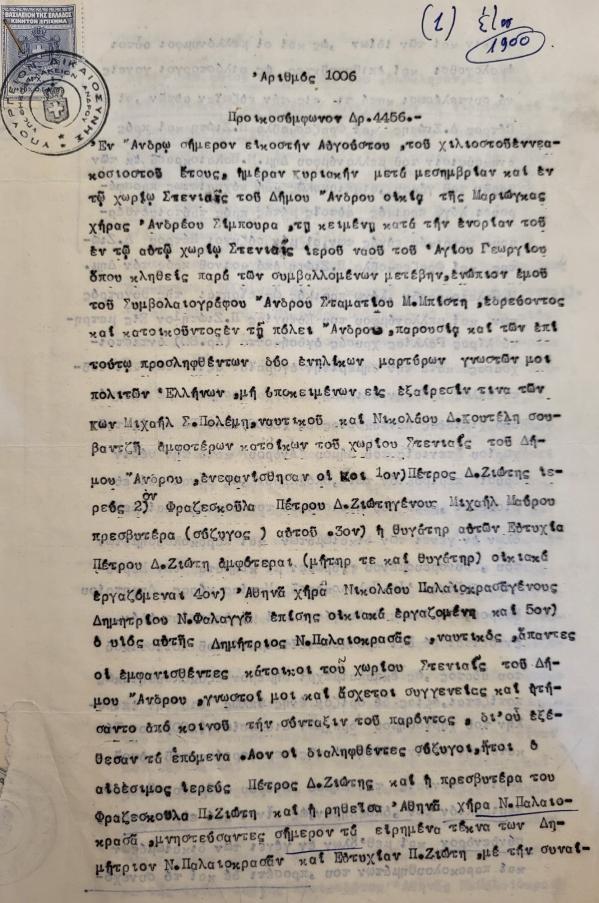 ΒΑΣΙΛΕΙΟΝ ΤΗΣ ΕΛΛΑΔΟΣ
ΚΙΝΗΤΟΝ ΕΠΙΣΗΜΑ
ΥΠΟΥΡΓΕΙΟΝ ΔΙΚΑΙΟΣΥΝΗΣ
(1) έτος
1900
Ἀριθμός 1006
Προικοσύμφωνον Δρ.4456.-
Ἐν Ἄνδρῳ σήμερον εἰκοστήν Αὐγούστου ,τοῦ χιλιοστοῦεννεα-
κοσιοστοῦ ἔτους, ἡμέραν κυριακήν μετά μεσημβρίαν καί ἐν
τῷ χωρίῳ Στενιαῖς τοῦ Δήμου Ἄνδρου οἰκίᾳ τῆς Μαριώγκας
χήρας Ἀνδρέου Σίμπουρα ,τῃ κειμένῃ κατά τήν ἐνορίαν τοῦ
ἐν τῷ αὐτῷ χωρίῳ Στενιαῖς ἱεροῦ ναοῦ τοῦ Ἁγίου Γεωργίου
ὅπου κληθείς παρά τῶν συμβαλλομένων μετέβην,ἐνώπιον ἐμοῦ
τοῦ Συμβολαιογράφου Ἄνδρου Σταματίου Μ.Μπίστη ,ἑδρεύοντος
καί κατοικοῦντος ἐν τῇ πόλει Ἄνδρου, παρουσίᾳ καί τῶν ἐπί
τούτῳ προσληφθέντων δύο ἐνηλίκων μαρτύρων γνωστῶν μοι
πολιτῶν Ἑλλήνων ,μή ὑποκειμένων εἰς ἐξαίρεσίν τινα τῶν
κων Μιχαήλ Σ.Πολέμη,ναυτικοῦ καί Νικολάου Δ.Κουτέλη σου-
βαντζῆ ἀμφοτέρων κατοίκων τοῦ χωρίου Στενιαῖς τοῦ Δή-
μου Ἄνδρου ,ἐνεφανίσθησαν οἱ κοι 1ον)Πέτρος Δ.Ζιώτης ἱε-
ρεύς 2)ον Φραζεσκοῦλα Πέτρου Δ.Ζιώτηγένους Μιχαήλ Μαύρου
πρεσβυτέρα (σύζυγος ) αὐτοῦ .3ον) ἡ θυγάτηρ αὐτῶν Εὐτυχία
Πέτρου Δ.Ζιώτη ἀμφότεραι (μήτηρ τε καί θυγάτηρ) οἰκιακά
ἐργαζόμεναι 4ον) Ἀθηνᾶ χήρα Νικολάου Παλαιοκρασᾶγένους
Δημητρίου Ν.Φαλαγγᾶ ἐπίσης οἰκιακά ἐργαζομένη καί 5ον)
ὁ υἱός αὐτῆς Δημήτριος Ν.Παλαιοκρασᾶς ,ναυτικός ,ἅπαντες
οἱ ἐμφανισθέντες κάτοικοι τοῦ χωρίου Στενιαῖς τοῦ Δή-
μου Ἄνδρου ,γνωστοί μοι καί ἄσχετοι συγγενείας καί ᾐτή-
σαντο ἀπό κοινοῦ τήν σύνταξιν τοῦ παρόντος , δι'οὗ ἐξέ-
θεσαν τά ἑπόμενα .Αον οἱ διαληφθέντες σύζυγοι,ἤτοι ὁ
αἰδέσιμος ἱερεύς Πέτρος Δ.Ζιώτης καί ἡ πρεσβυτέρα του
Φραζεσκοῦλα Π.Ζιώτη καί ἡ ρηθεῖσα Ἀθηνᾶ χήρα Ν.Παλαιο-
κρασᾶ ,μνηστεύσαντες σήμερον τά εἰρημένα τέκνα των Δη-
μήτριον Ν.Παλαιοκρασᾶν καί Εὐτυχίαν Π.Ζιώτη ,μέ τήν συναί-